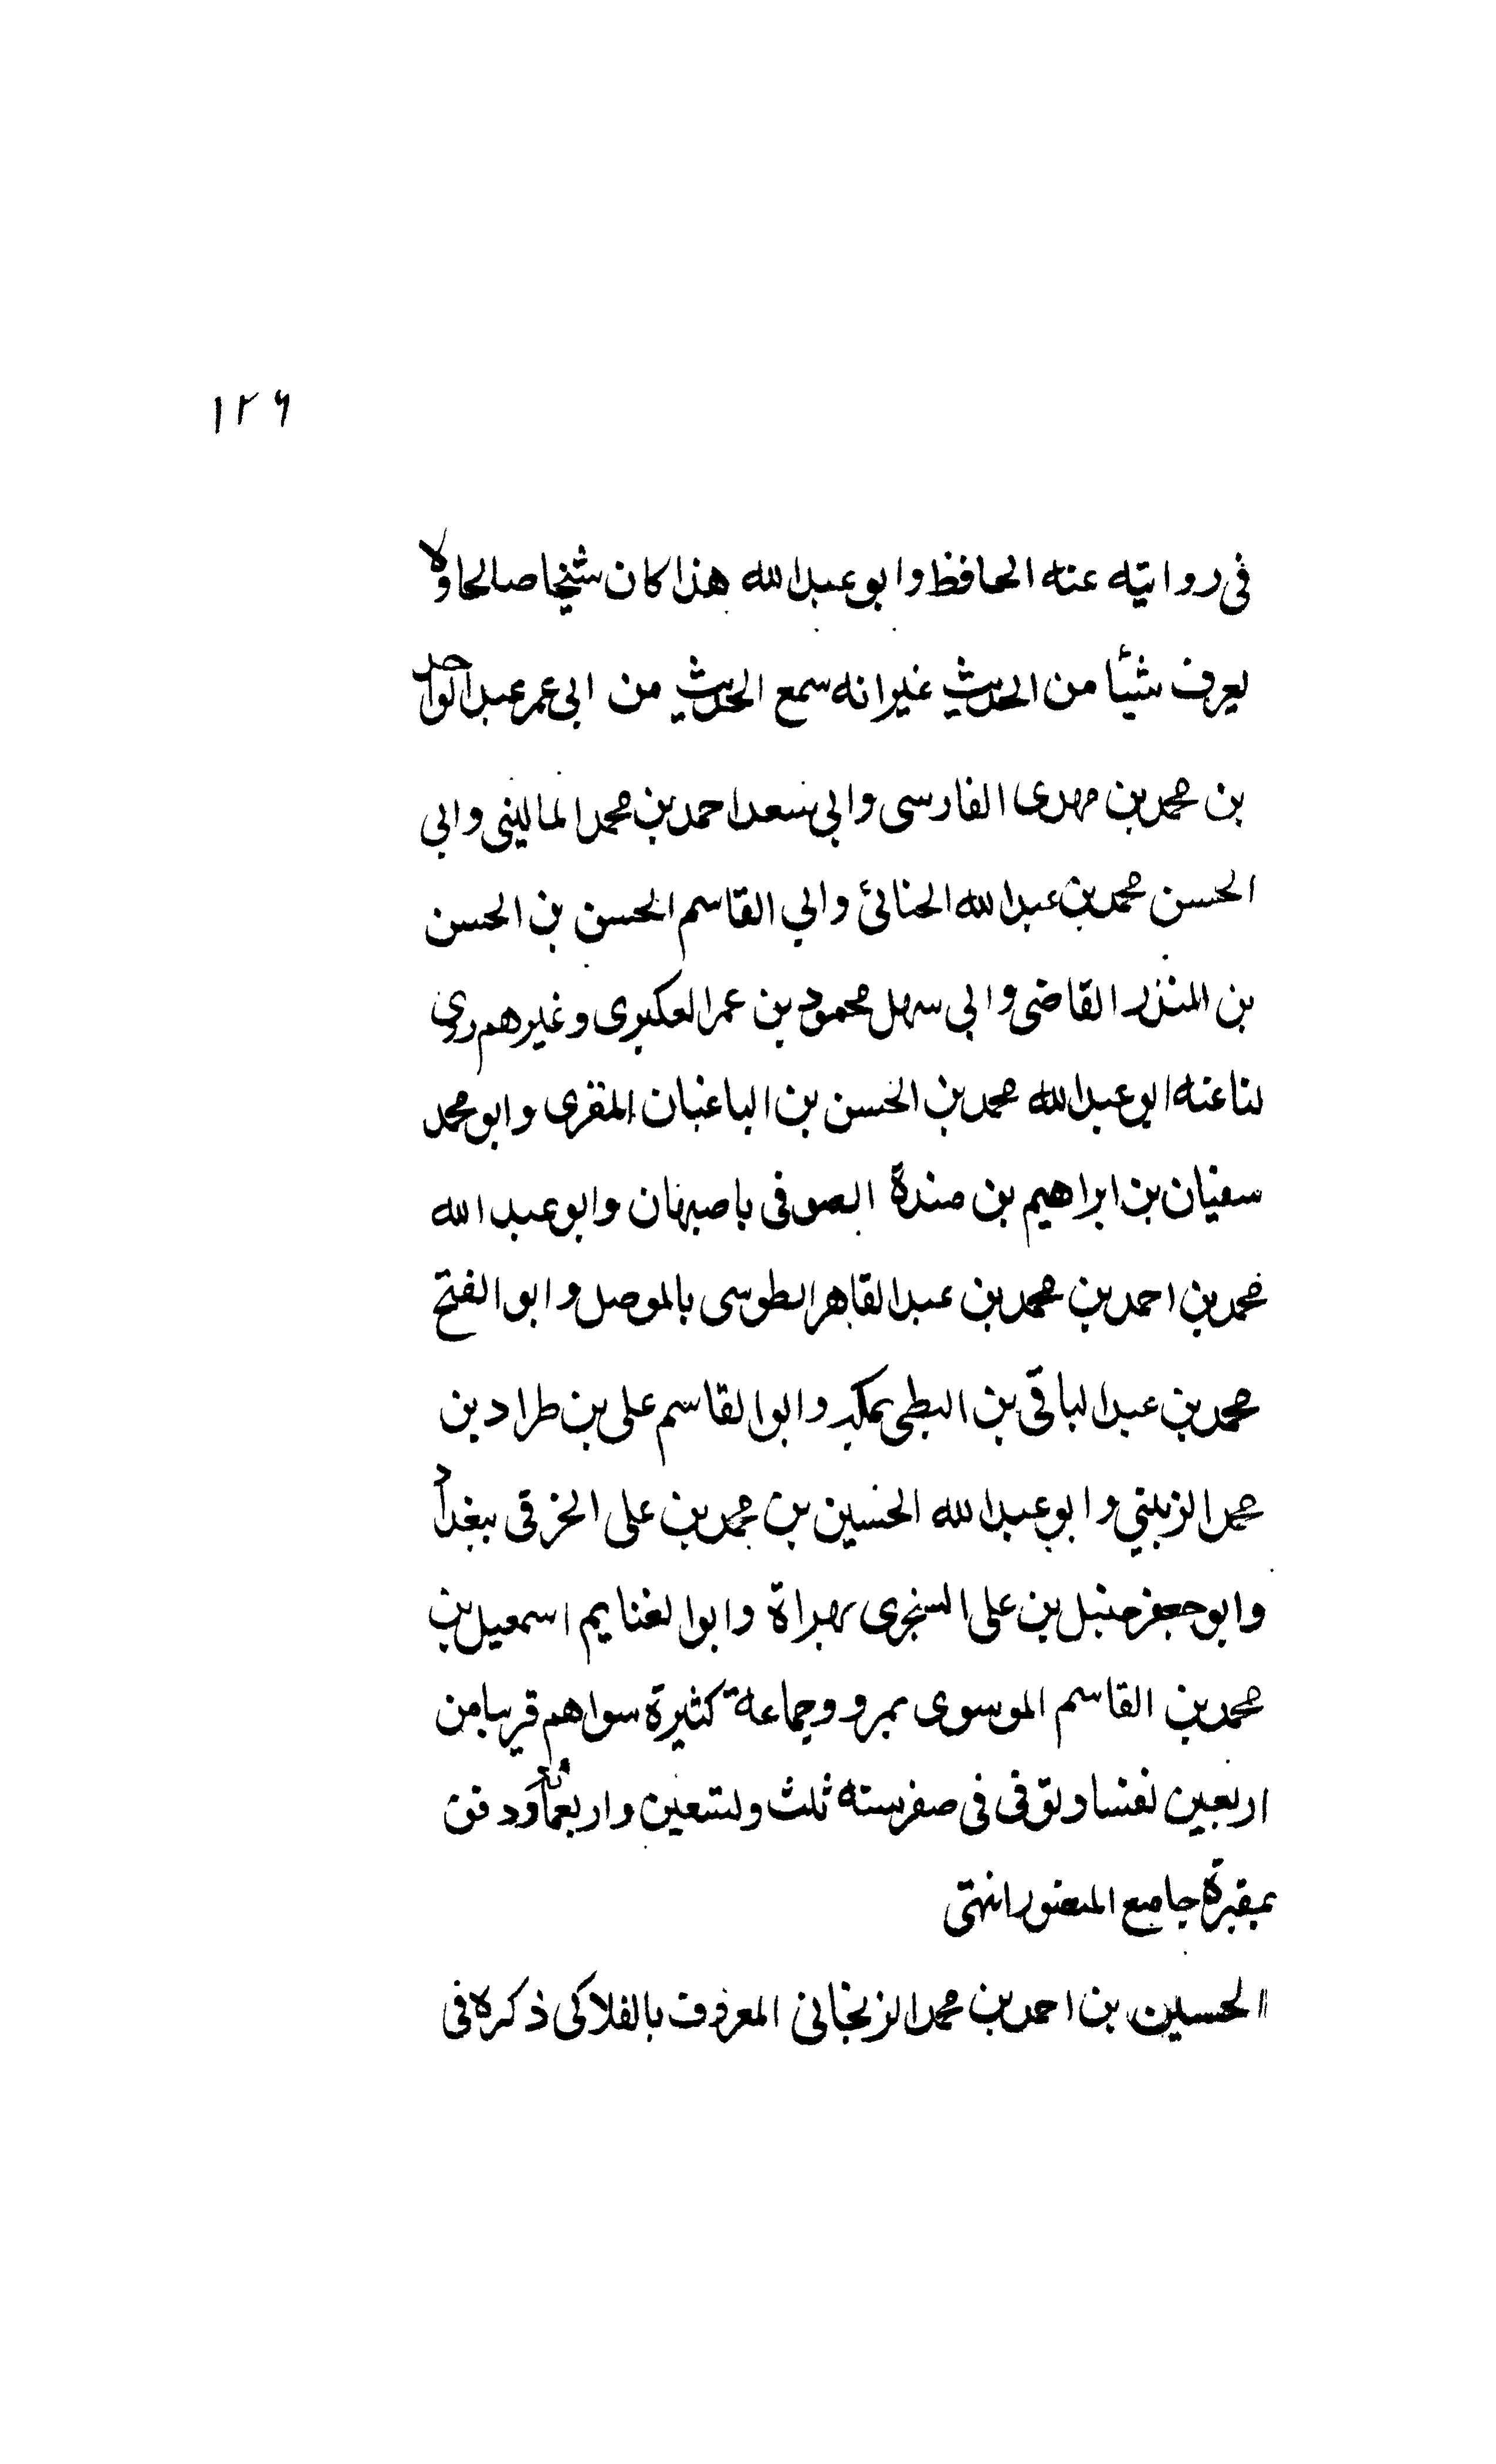 ١٢٦
فى روايته عنه الحافظ وابو عبد الله هذا كان شيخا صالحا ولا
يعرف شيئا من الحديث غير انه سمع الحديث من ابى عمر عبد الواحد
بن محمد بن مهدى الفارسى وابى سعد احمد بن محمد المالينى وابى
الحسن محمد بن عبد الله الحنائى وابى القاسم الحسن بن الحسن
بن المنذر القاضى وابى سهل محمود بن عمر العكبرى وغيرهم روى
لنا عنه ابو عبد الله محمد بن الحسن بن الباغبان المقرى وابو محمد
سفيان بن ابراهيم بن مندة الصوفى باصبهان وابو عبد الله
محمد بن احمد بن محمد بن عبد القاهر الطوسى بالموصل وابو الفتح
محمد بن عبد الباقى بن البطى بمكه وابو القاسم على بن طراد بن
محمد الزينبى وابو عبد الله الحسين بن محمد بن على الخرقى ببغداد
وابو جعفر حنبل بن على السنجرى بهراة وابو الغنايم اسمعيل بن
محمد بن القاسم الموسوى بمرو وجماعة كثيرة سواهم قريبا من
اربعين نفسا وتوفى فى صفر سنه ثلث وتسعين واربعمائه ودفن
بمقبرة جامع المنصور انتهى
الحسين بن احمد بن محمد الزنجانى المعروف بالفلاكى ذكره فى